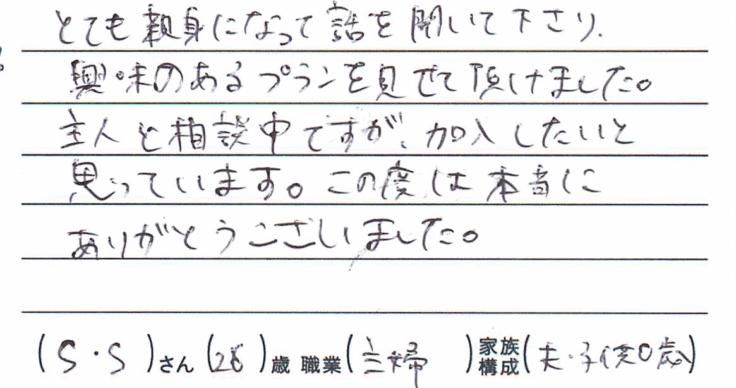 とても親身になって話を聞いて下さり、
興味のあるプランを見せて頂けました。
主人と相談中ですが、加入したいと
思っています。この度は本当に
ありがとうございました。
(S・S)さん(28)歳 職業(主婦)家族構成(夫・子供0歳)